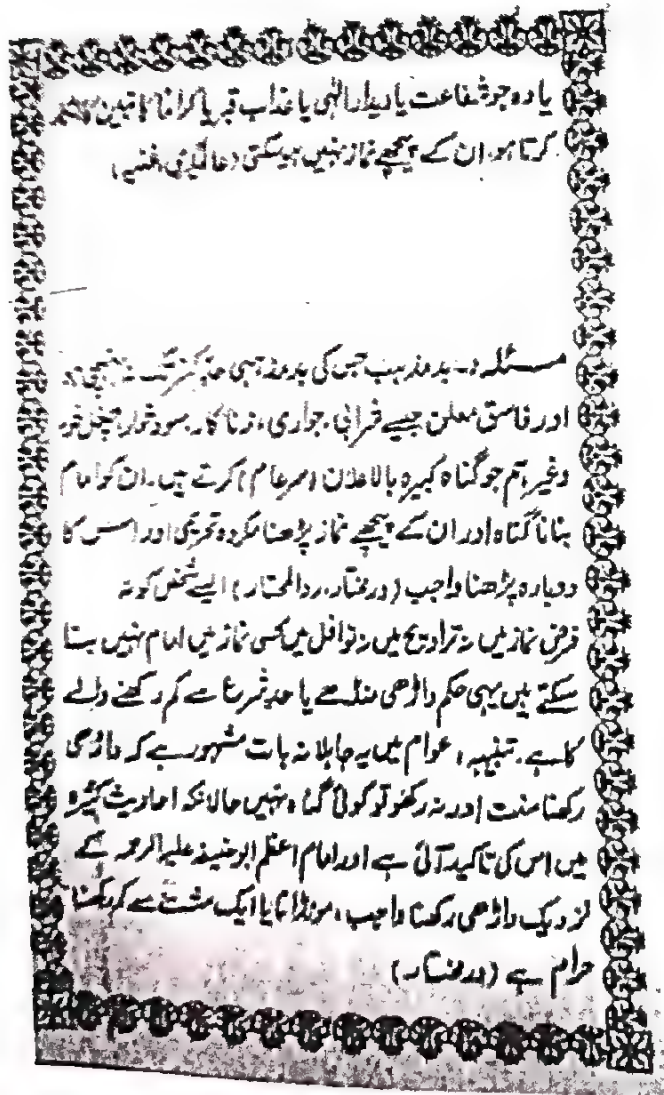 یا وہ جو شفاعت یا دیدار الٰہی یا عذاب قبر یا کراماً کاتبین کا انکار
کرتا ہو، ان کے پیچھے نماز نہیں ہو سکتی (عالمگیری، غنیہ)
مسئلہ :۔ بدمذہب جس کی بدمذہبی حد کفر تک نہ پہنچی ہو
اور فاسق معلن جیسے شرابی، جواری، زنا کار، سود خوار، چغل خور
وغیرہم جو گناہ کبیرہ بالاعلان (سرعام) کرتے ہیں۔ ان کو امام
بنانا گناہ اور ان کے پیچھے نماز پڑھنا مکروہ تحریمی اور اس کا
دوبارہ پڑھنا واجب (درمختار، ردالمحتار) ایسے شخص کو نہ
فرض نماز میں نہ تراویح میں نہ نوافل میں کسی نماز میں امام نہیں بنا
سکتے ہیں یہی حکم داڑھی منڈے یا حد شرع سے کم رکھنے والے
کا ہے۔ تنبیہہ: عوام میں یہ جاہلانہ بات مشہور ہے کہ داڑھی
رکھنا سنت اور نہ رکھو تو کوئی گناہ نہیں حالانکہ احادیث کثیرہ
میں اس کی تاکید آئی ہے اور امام اعظم ابوحنیفہ علیہ الرحمہ کے
نزدیک داڑھی رکھنا واجب، مونڈانا یا ایک مشت سے کم رکھنا
حرام ہے (درمختار)